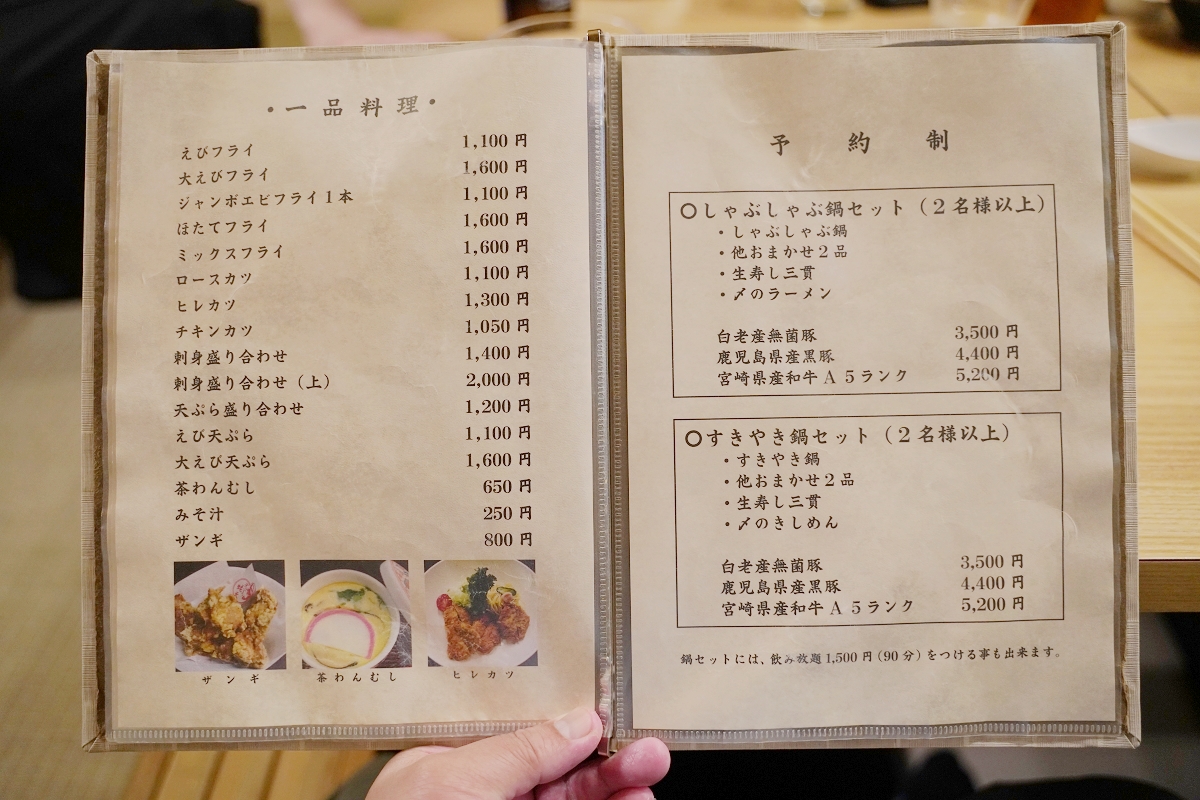 ・一品料理・
えびフライ 1,100円
大えびフライ 1,600円
ジャンボエビフライ1本 1,100円
ほたてフライ 1,600円
ミックスフライ 1,600円
ロースカツ 1,100円
ヒレカツ 1,300円
チキンカツ 1,050円
刺身盛り合わせ 1,400円
刺身盛り合わせ（上） 2,000円
天ぷら盛り合わせ 1,200円
えび天ぷら 1,100円
大えび天ぷら 1,600円
茶わんむし 650円
みそ汁 250円
ザンギ 800円
ザンギ
茶わんむし
ヒレカツ
予約制
〇しゃぶしゃぶ鍋セット（2名様以上）
・しゃぶしゃぶ鍋
・他おまかせ2品
・生寿し三貫
・〆のラーメン
白老産無菌豚 3,500円
鹿児島県産黒豚 4,400円
宮崎県産和牛A5ランク 5,200円
〇すきやき鍋セット（2名様以上）
・すきやき鍋
・他おまかせ2品
・生寿し三貫
・〆のきしめん
白老産無菌豚 3,500円
鹿児島県産黒豚 4,400円
宮崎県産和牛A5ランク 5,200円
鍋セットには、飲み放題1,500円（90分）をつける事も出来ます。